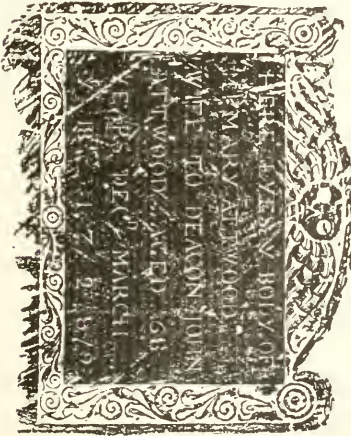 HERE LYES Yᴱ BODY OF
MARY ATTWOOD
WIFE TO DEACON JOHN
ATTWOOD AGED 68
YEARS DECᴰ MARCH